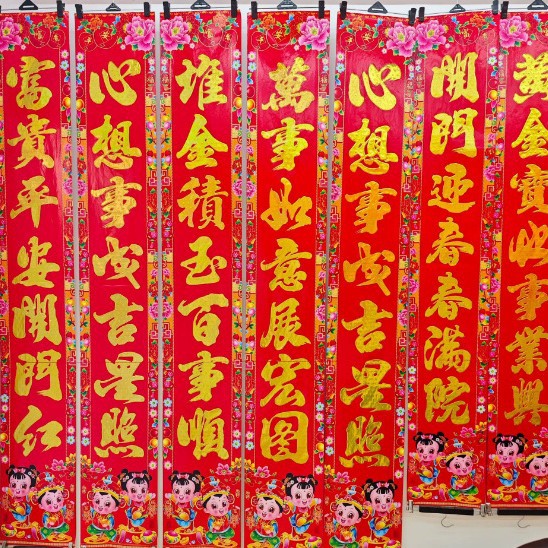 富貴平安開門紅
心想事成吉星照
堆金積玉百事順
萬事如意展宏图
心想事成吉星照
開門迎春春滿院
黃金寶地事業興